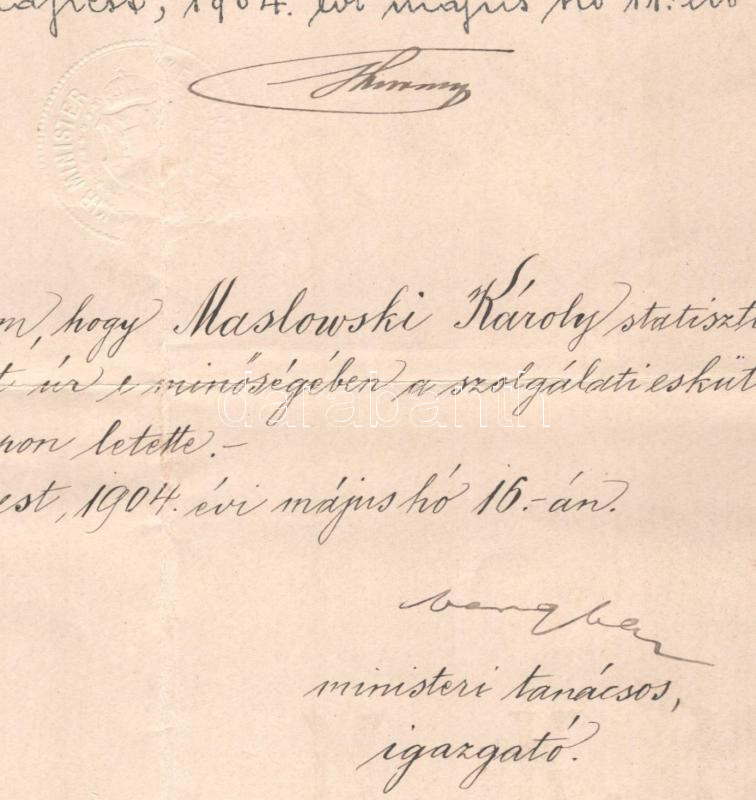 1904. évi május hó 11.-én
MINISTER
m, hogy Maslowski Károly statiszti
t úr e minőségében a szolgálati esküt
on letette.-
est, 1904. évi május hó 16.-án.
darabanth
ministeri tanácsos,
igazgató.